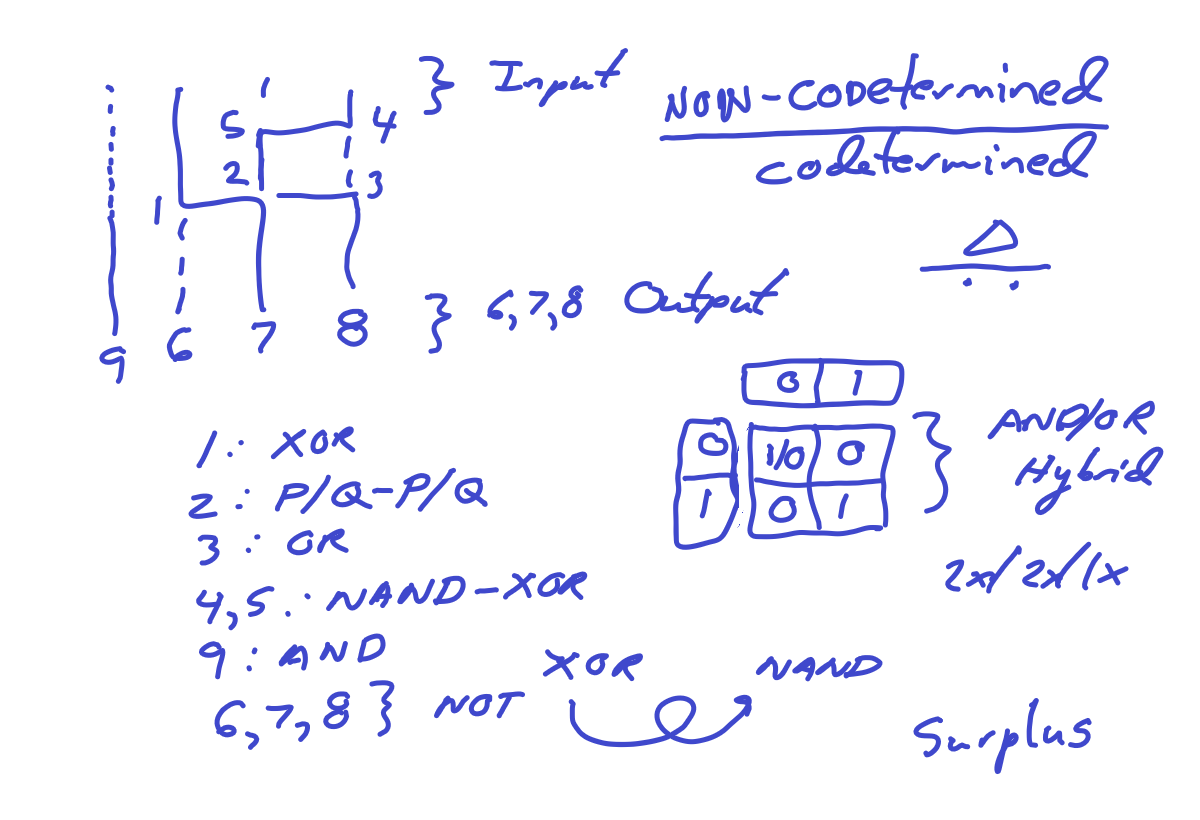 } Input
5 4
2 3
1
9 6 7 8
} 6,7,8 Output
NON-CODetermined
codetermined
0 1
0 1/0 0
1 0 1
} AND/OR
Hybrid
2x/2x/1x
1: XOR
2: P/Q-P/Q
3: OR
4,5: NAND-XOR
9: AND
6,7,8} NOT
XOR NAND
Surplus